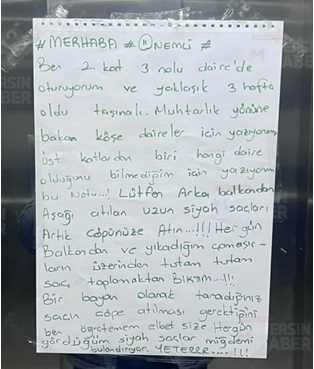 #MERHABA # ÖNEMLİ #
Ben 2. kat 3 nolu daire'de
oturuyorum ve yaklaşık 3 hafta
oldu taşınalı. Muhtarlık yönüne
bakan köşe daireler için yazıyorum
üst katlardan biri hangi daire
olduğunu bilmediğim için yazıyorum
bu Notu...! Lütfen Arka balkondan
Aşağı atılan uzun siyah saçları
Artık Çöpünüze Atın...!!! Her gün
Balkondan ve yıkadığım çamaşır-
ların üzerinden tutam tutam
saç toplamaktan BIKTIM...!!
Bir bayan olarak taradığınız
saçın çöpe atılması gerektiğini
ben öğretemem elbet size Hergün
gördüğüm siyah saçlar midemi
bulandırıyor. YETERRR....!!!
MERSİN
HABER
MERSİN
HABER